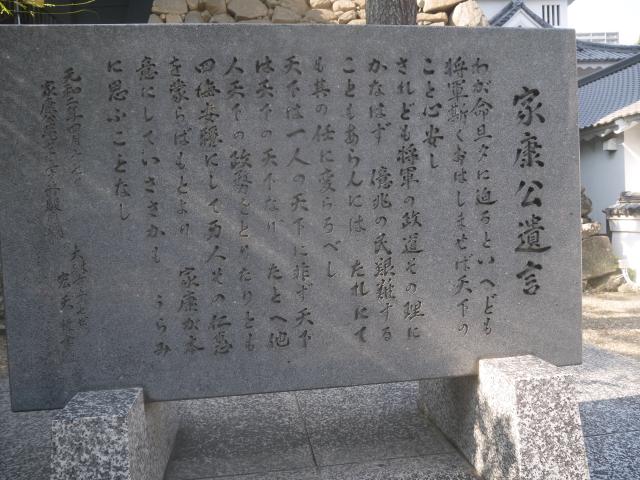 家康公遺言
わが命旦夕に迫るといへども
将軍斯くおはしませば天下の
こと心安し
されども将軍の政道その理に
かなはず 億兆の民艱難する
こともあらんには たれにて
も其の任に変らるべし
天下は一人の天下に非ず天下
は天下の天下なり たとへ他
人天下の政務をとりたりとも
四海安穏にして万人その仁恩
を蒙らばもとより 家康が本
意にしていささかも うらみ
に思ふことなし
元和二年四月
家康公